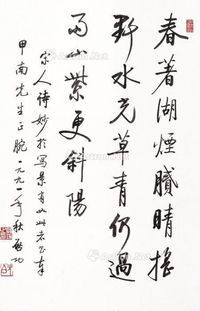 春著湖煙膩晴搖
野水光草青仍過
雨山紫更斜陽
宋人詩妙於寫景有如此者書奉
甲南先生正腕一九九一年秋啓功